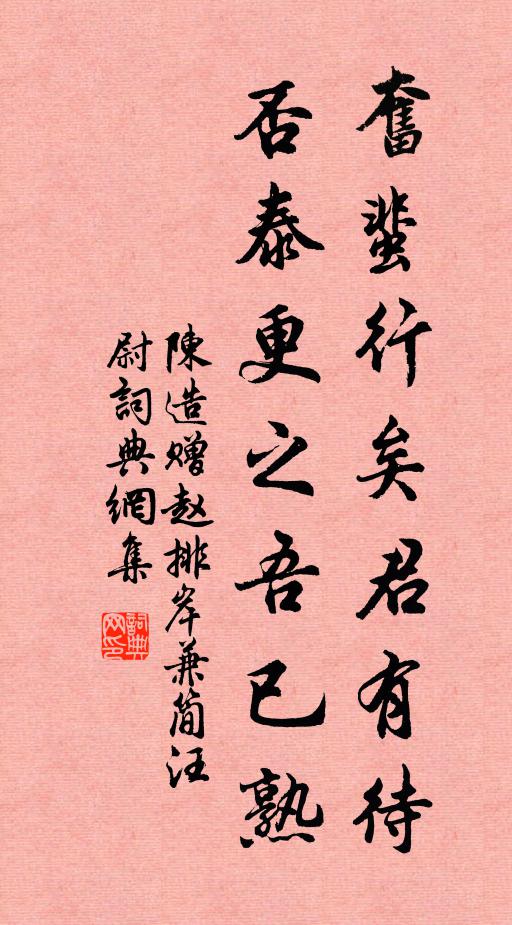 奮蜚行矣君有待
否泰更之吾已熟
陳造赠赵排岸兼简汪
尉詞典網集
詞典网印